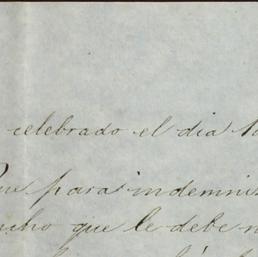 celebrado el dia
Que para indemni
ucho que le debe n